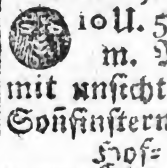 10 U. 5
m. V
mit unſicht
Soñfinſtern
Hof⸗